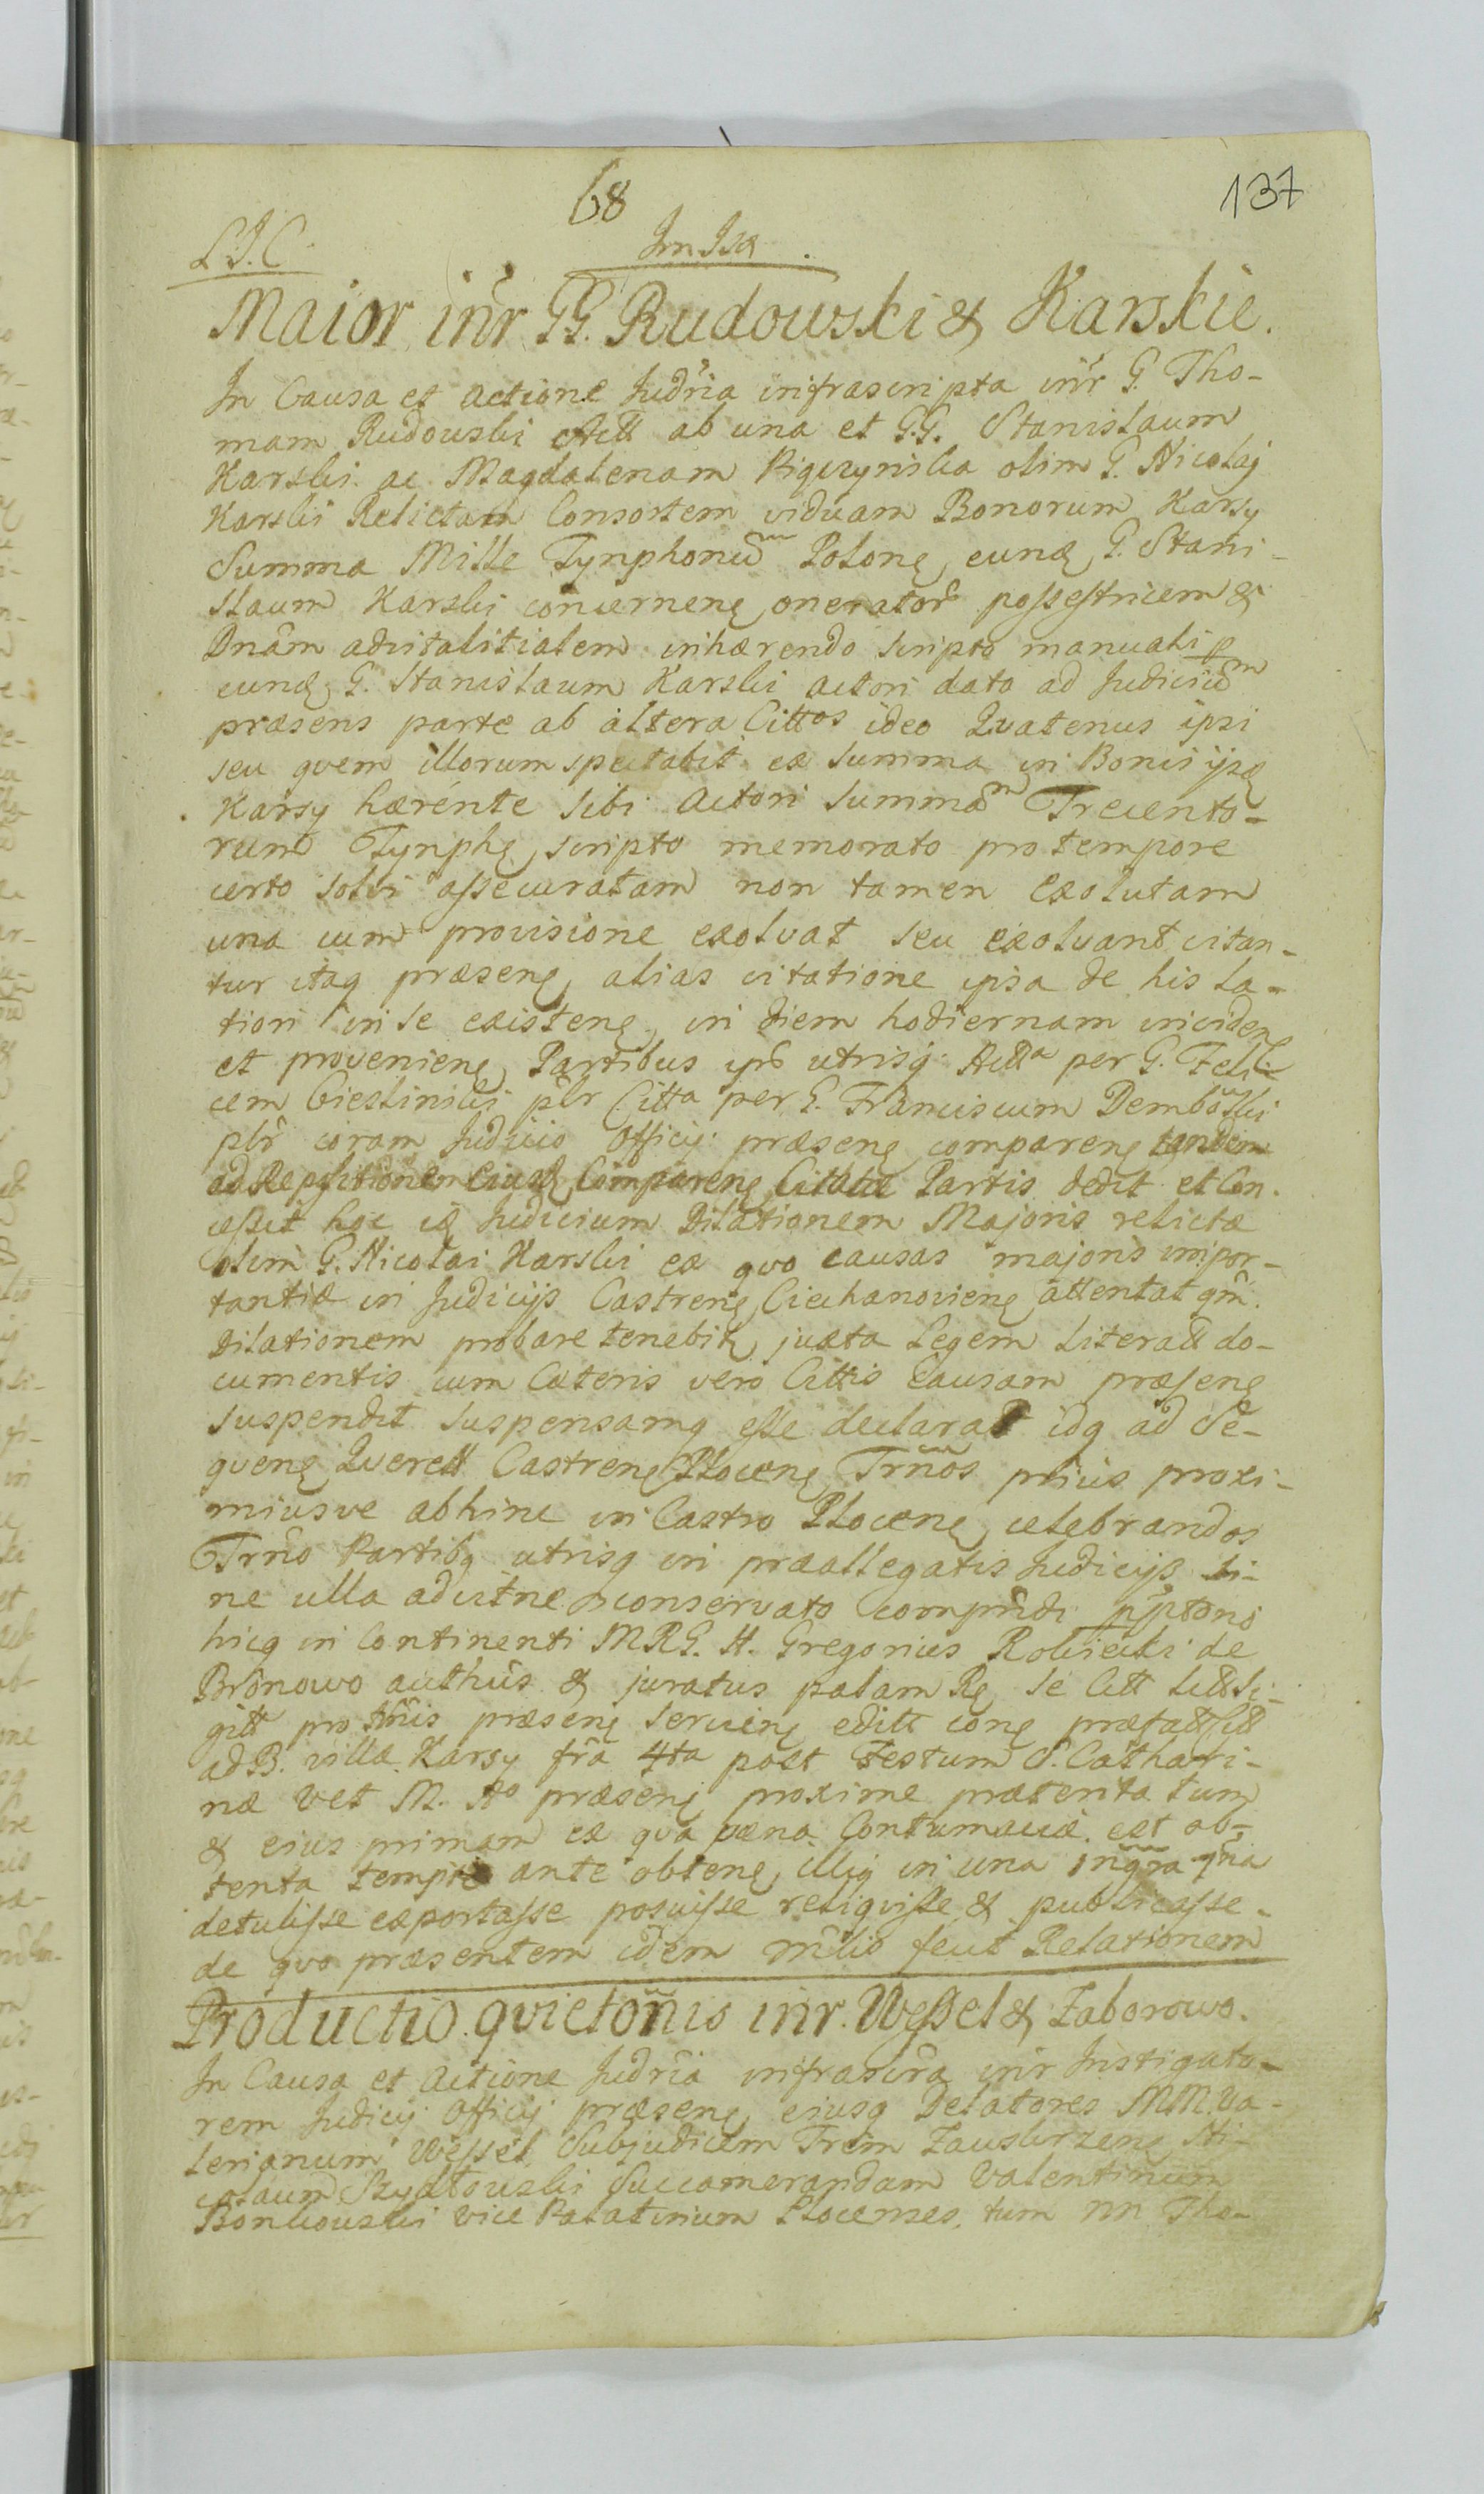 68
137
L.J.C.
Maior inr GG. Rudowski & Karskie.
In Causa et actione Judria infrascripta inr G. Tho-
mam Rudowski Actt ab una et G.G. Stanislaum
Karski ac Magdalenam olim G. Nicolaj
Karski Relictam Consortem viduam Bonorum Karsy
Summa Mille Tynphonũ Polonę, eunę G. Stani-
slaum Karski concernenę onerator possestricem &
Dnam advitalitialem inhærendo scripto manuali p
eunę G. Stanislaum Karski actori dato ad Judiciũ
præsens parte ab altera Cittos ideo Quatenus ipsi
seu quem illorum spectabit ex summa in Bonis ijsę
Karsy hærente sibi actori summã Trecento-
rum Tynphę scripto memorato pro tempore
certo solvi assecuratam non tamen exolutam
una cum provisione exolvat seu exolvant citan-
tur itaq præsenę, alias citatione ipsa de his la-
tiori in se existenę, in diem hodiernam inciden
et provenienę Partibus ipŝ utrisq: Actta per G. Feli-
cem plr Citta per G. Franciscum Dembowski
plr coram Judicio Officij præsenę comparenę tandem
ad Repositionem Comparenę Citatæ Partis dedit et Con-
cessit hoc Judicium Dilationem Majoris relictæ
olim G. Nicolai Karski ex quo causas majoris impor-
tantiæ in Judicijs Castrenę Ciechanovienę attentat qm̃
Dilationem probare tenebitr juxta Legem Literatt do-
cumentis cum Cæteris vero Cittis Causam præsenę
suspendit suspensamq esse declarat idq ad Se-
quenę Querell Castrenę Plocenę Trnos prius proxi-
miusve abhinc in Castro Plocenę celebrandos
Trno Partibq utrisq in præallegatis Judicijs si-
ne ulla adcitne conservato comprndi
hicq in Continenti M.R.G. H. Gregorius de
Bronowo authus & juratus palam Rę se Citt
pro trnis præsenę servienę editt conę præfatt
ad B. villæ Karsy fra 4ta post Festum S. Cathari-
næ Vet M. Ao præsenę proxime præterita tum
& eius primam ex qua pæna Contumaciæ est ob-
tenta tempre ante obtenę, illiq in una
detulisse exportasse posuisse reliquisse & publicasse.
de quo præsentem idem fecit Relationem
Productio quietonis inr. Wessel & Zaborowo.
In Causa et Actione Judria infrascra inr Instigato-
rem Judicij Officij præsenę, ejusq Delatores M.M. Va-
lerianum Wessel Subjudicem Trem Zauskrzenę, Ni-
colaum Szydłowski Succamerandam Valentinum
Bonkowski Vice Palatinum Plocenses, tum nn Tho-